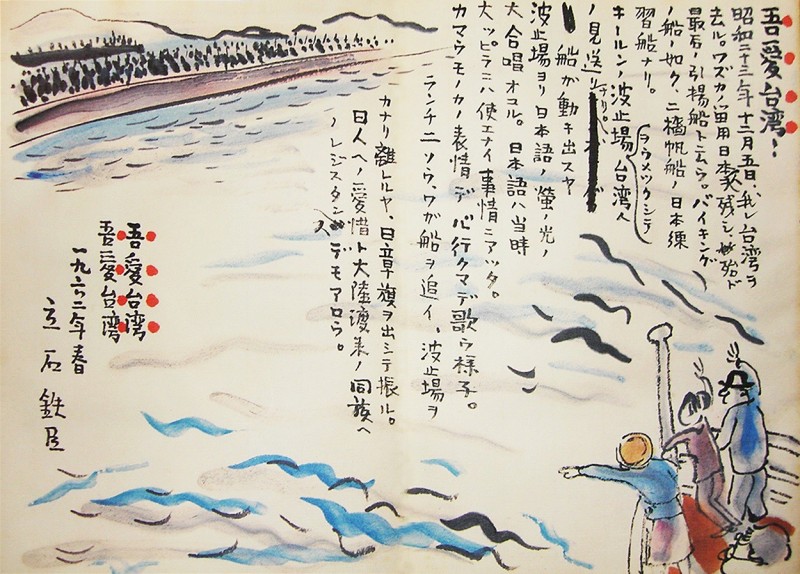 吾愛台湾!
昭和二十三年十二月五日、我レ台湾ヲ
去ル。ワズカノ留用日本人残シ、殆ンド
最后ノ引揚船ト云ウ。バイキング
ノ船ノ如ク、二檣帆船ノ日本練
習船ナリ。
キールンノ波止場ヲウメツクシテ台湾人
ノ見送リナリ。
船が動キ出スヤ
波止場ヨリ日本語ノ螢ノ光ノ
大合唱オコル。日本語ハ当時
大ッピラニハ使エナイ事情ニアッタ。
カマウモノカノ表情デ心行クマデ歌ウ様子。
ランチ二ソウ、ワガ船ヲ追イ、波止場ヲ
カナリ離レルヤ、日章旗ヲ出シテ振ル。
日人ヘノ愛惜ト大陸渡来ノ同族ヘ
ノレジスタンスデモアロウ。
吾愛台湾
吾愛台湾
一九六二年春
立石鉄臣